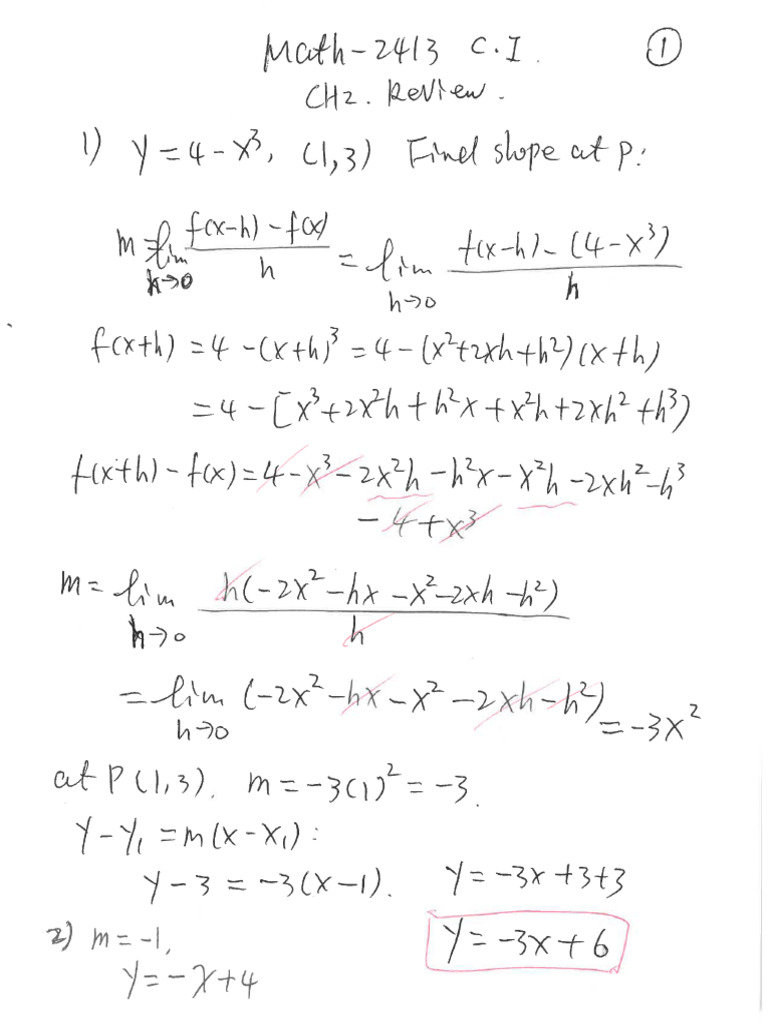 Math-2413 C.I. ①
CH2. Review.
1) y=4-x³, (1,3) Find slope at P:
m = lim h→0 (f(x-h)-f(x))/h = lim h→0 (f(x-h)-(4-x³))/h
f(x+h) = 4-(x+h)³ = 4-(x²+2xh+h²)(x+h)
= 4-[x³+2x²h+h²x+x²h+2xh²+h³)
f(x+h)-f(x) = 4-x³-2x²h-h²x-x²h-2xh²-h³
-4+x³
m = lim h→0 h(-2x²-hx-x²-2xh-h²)/h
= lim h→0 (-2x²-hx-x²-2xh-h²) = -3x²
at P(1,3). m = -3(1)² = -3.
y-y₁ = m(x-x₁):
y-3 = -3(x-1). y = -3x+3+3
2) m=-1, y = -3x+6
y=-x+4